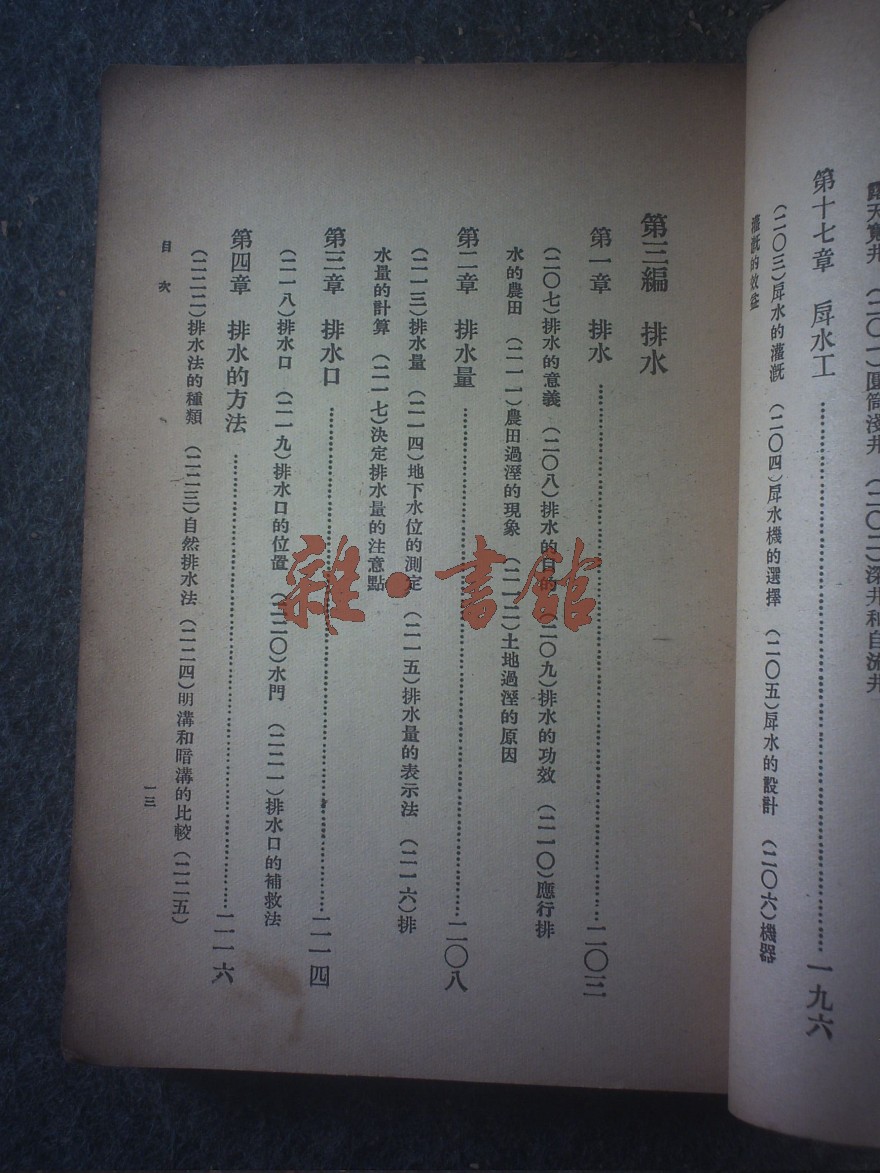 露天寬井 (二〇一)圓筒淺井 (二〇二)深井和自流井
第十七章 戽水工 一九六
(二〇三)戽水的灌溉 (二〇四)戽水機的選擇 (二〇五)戽水的設計 (二〇六)機器
灌溉的效益
第三編 排水
第一章 排水 二〇三
(二〇七)排水的意義 (二〇八)排水的目的 (二〇九)排水的功效 (二一〇)應行排
水的農田 (二一一)農田過溼的現象 (二一二)土地過溼的原因
第二章 排水量 二〇八
(二一三)排水量 (二一四)地下水位的測定 (二一五)排水量的表示法 (二一六)排
水量的計算 (二一七)決定排水量的注意點
第三章 排水口 二一四
(二一八)排水口 (二一九)排水口的位置 (二二〇)水門 (二二一)排水口的補救法
第四章 排水的方法 二一六
(二二二)排水法的種類 (二二三)自然排水法 (二二四)明溝和暗溝的比較 (二二五)
目次
一三
雜·書館